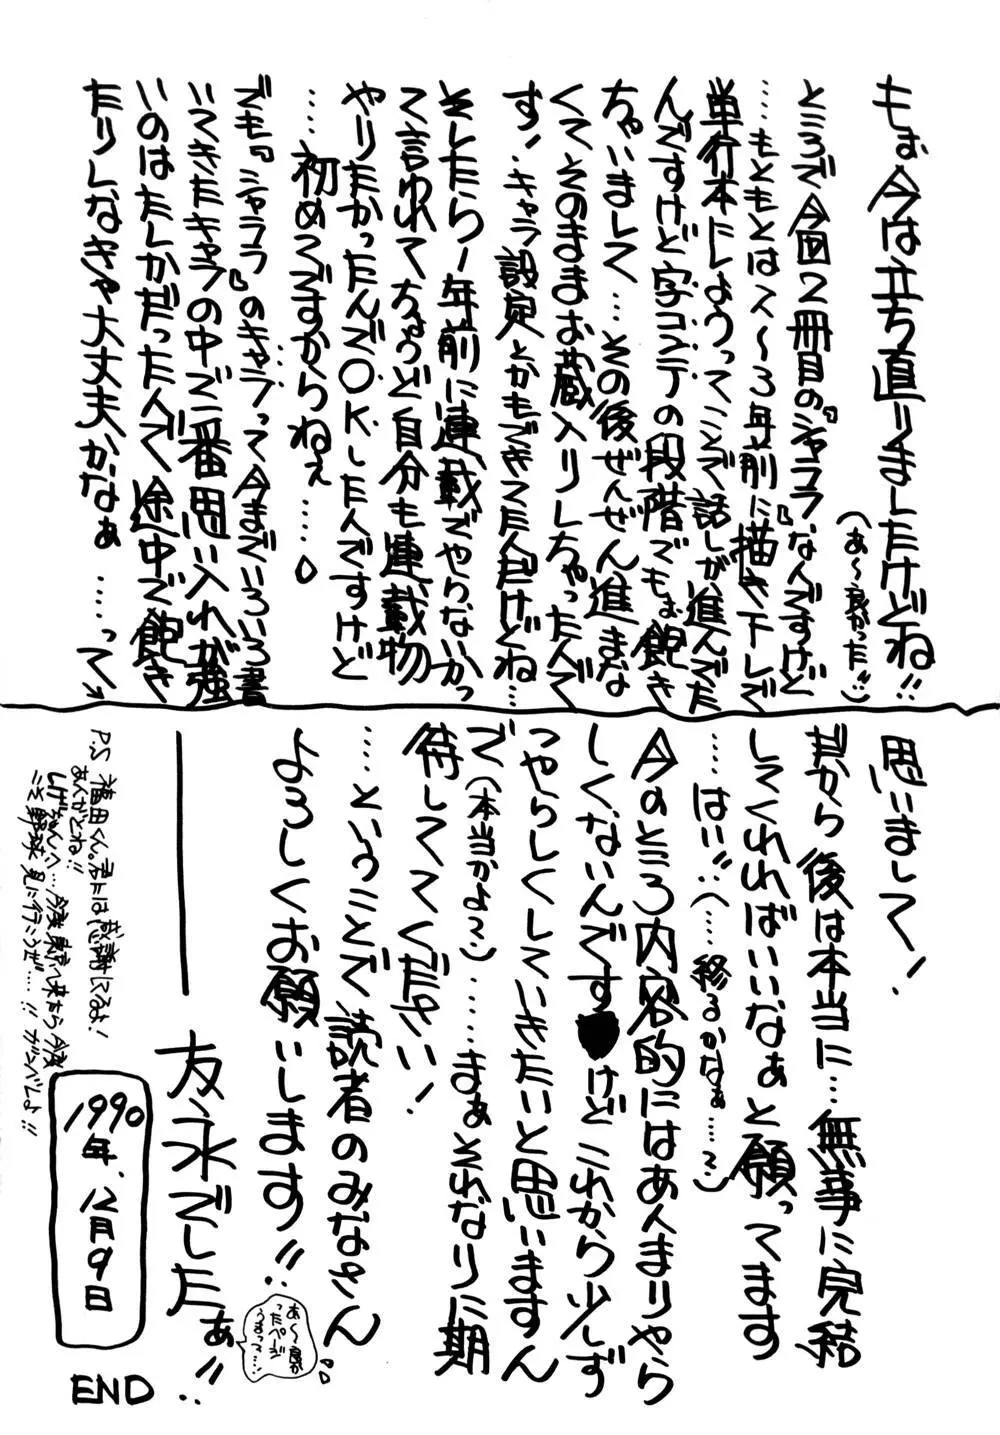 もぉ今は立ち直りましたけどね!!
(あ〜良かった…)
ところで今回2冊目の『シャララ』なんですけど
…もともとは2〜3年前に描き下しで
単行本にしようってことで話しが進んでた
んですけど字コンテの段階でもぉ飽き
ちゃいまして…その後ぜんぜん進まな
くてそのままお蔵入りしちゃったんで
す!キャラ設定とかもできてたんだけどね…
そしたら1年前に連載でやらないかっ
て言われてちょうど自分も連載物
やりたかったんでOKしたんですけど
……初めてですからねぇ……
でも『シャララ』のキャラって今までいろいろ書
いてきたキャラの中で一番思い入れが強
いのはたしかだったんで途中で飽き
たりしなきゃ大丈夫かなぁ……って
思いまして!
だから後は本当に…無事に完結
してくればいいなぁと願ってます
…はい…(…終るかなぁ……)
今のところ内容的にはあんまりやら
しくないんです♥けどこれから少しず
つやらしくしていきたいと思いますん
で(本当かよ〜)……まぁそれなりに期
待しててください!
…ということで読者のみなさん
よろしくお願いします!!
あ〜良か
ったページ
うまって…
友永でしたぁ!!
P.S 福田くん。君には感謝してるよ!
あんがとね!!
しげちゃんへ…今度東京へ来たら今度
こそ野球見に行こうぜ…!! ガンバレよ!!
1990年、12月9日
END